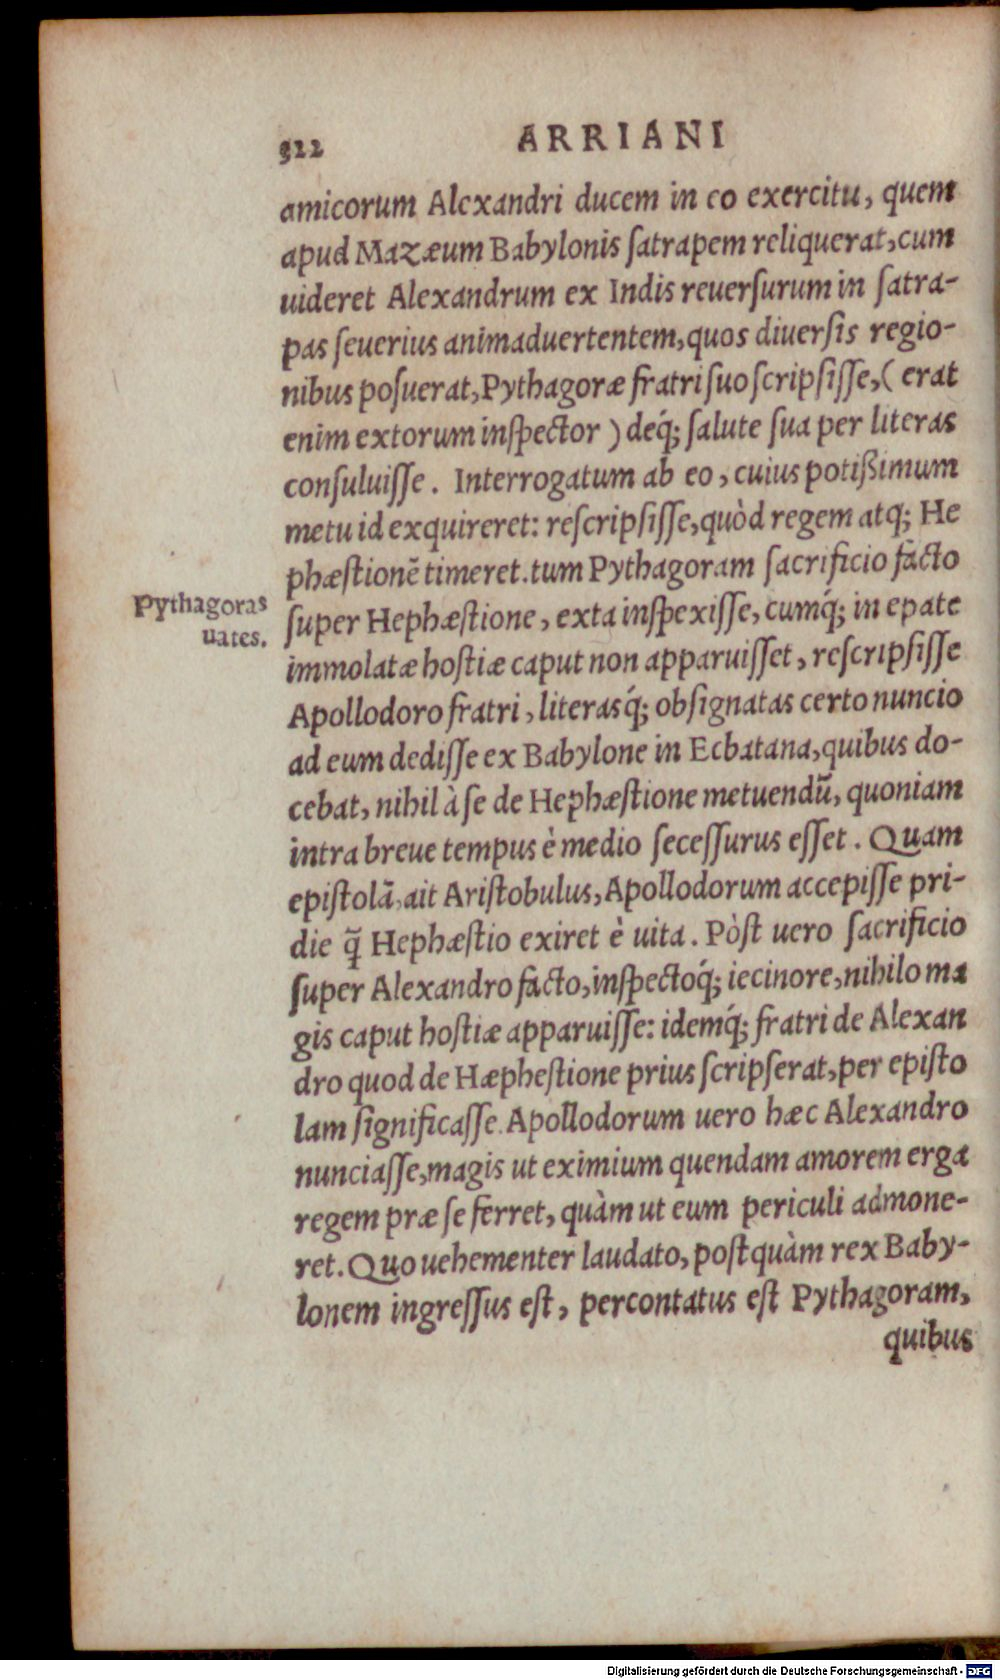 522 ARRIANI
amicorum Alexandri ducem in eo exercitu, quem
apud Mazæum Babylonis ſatrapem reliquerat, cum
uideret Alexandrum ex Indis reuerſurum in ſatra-
pas ſeuerius animaduertentem, quos diuerſis regio-
nibus poſuerat, Pythagoræ fratri ſuo ſcripſiſſe, ( erat
enim extorum inſpector ) deq́; ſalute ſua per literas
conſuluiſſe. Interrogatum ab eo, cuius potißimum
metu id exquireret: reſcripſiſſe, quòd regem atq; He
phæſtionē timeret. tum Pythagoram ſacrificio facto
Pythagoras
uates.
ſuper Hephæſtione, exta inſpexiſſe, cumq́; in epate
immolatæ hoſtiæ caput non apparuiſſet, reſcripſiſſe
Apollodoro fratri, literasq́; obſignatas certo nuncio
ad eum dediſſe ex Babylone in Ecbatana, quibus do-
cebat, nihil à ſe de Hephæſtione metuendū, quoniam
intra breue tempus è medio ſeceſſurus eſſet. Quam
epiſtolā, ait Ariſtobulus, Apollodorum accepiſſe pri-
die q̄ Hephæſtio exiret è uita. Pòſt uero ſacrificio
ſuper Alexandro facto, inſpectoq́; iecinore, nihilo ma
gis caput hoſtiæ apparuiſſe: idemq́; fratri de Alexan
dro quod de Hæpheſtione prius ſcripſerat, per epiſto
lam ſignificaſſe. Apollodorum uero hæc Alexandro
nunciaſſe, magis ut eximium quendam amorem erga
regem præ ſe ferret, quàm ut eum periculi admone-
ret. Quo uehementer laudato, poſtquàm rex Baby-
lonem ingreſſus eſt, percontatus eſt Pythagoram,
quibus
Digitalisierung gefördert durch die Deutsche Forschungsgemeinschaft - DFG